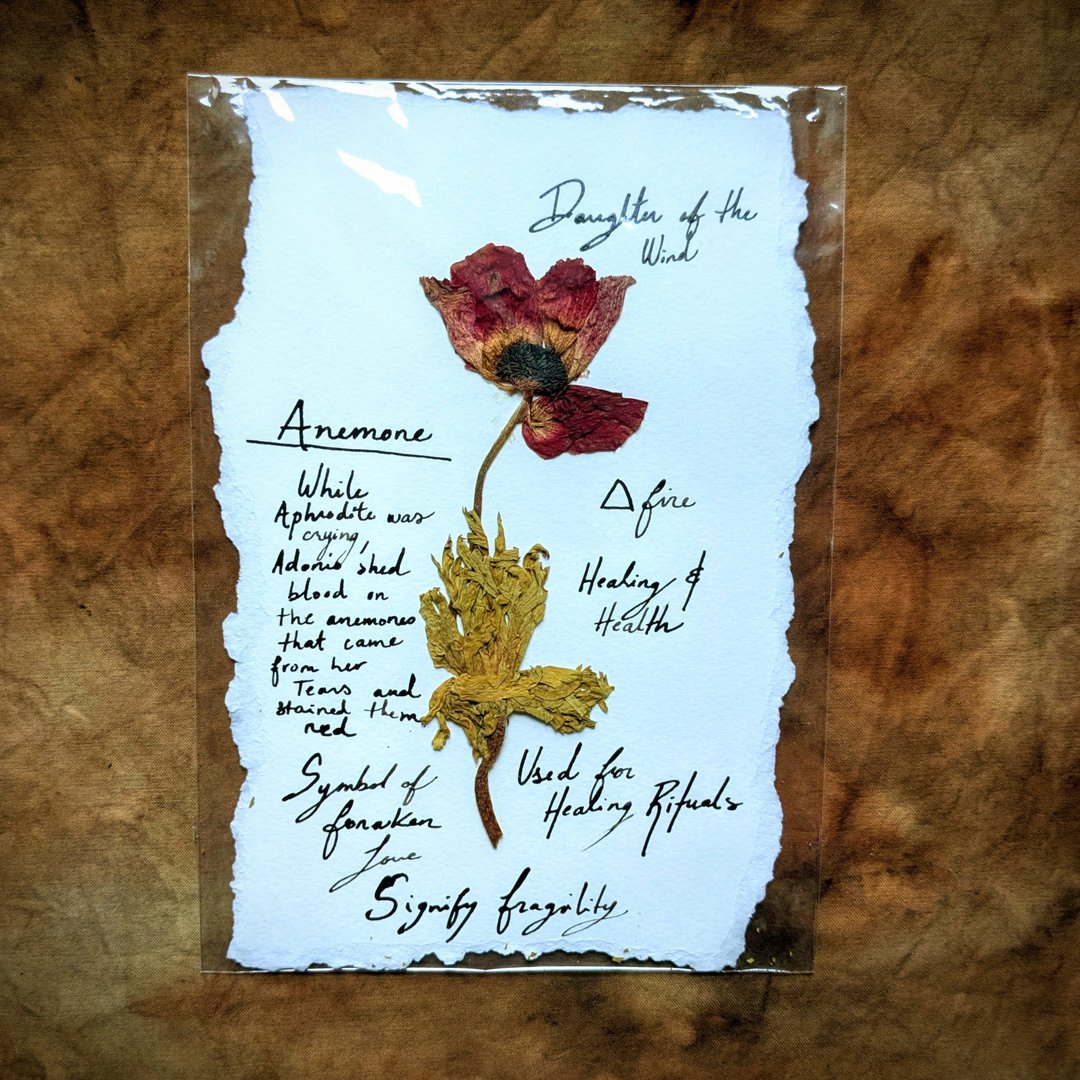 Daughter of the
Wind
Anemone
While
Aphrodite was
crying,
Adonis shed
blood on
the anemones
that came
from her
Tears and
stained them
red
Symbol of
forsaken
Love
△ fire
Healing &
Health
Used for
Healing Rituals
Signify fragility